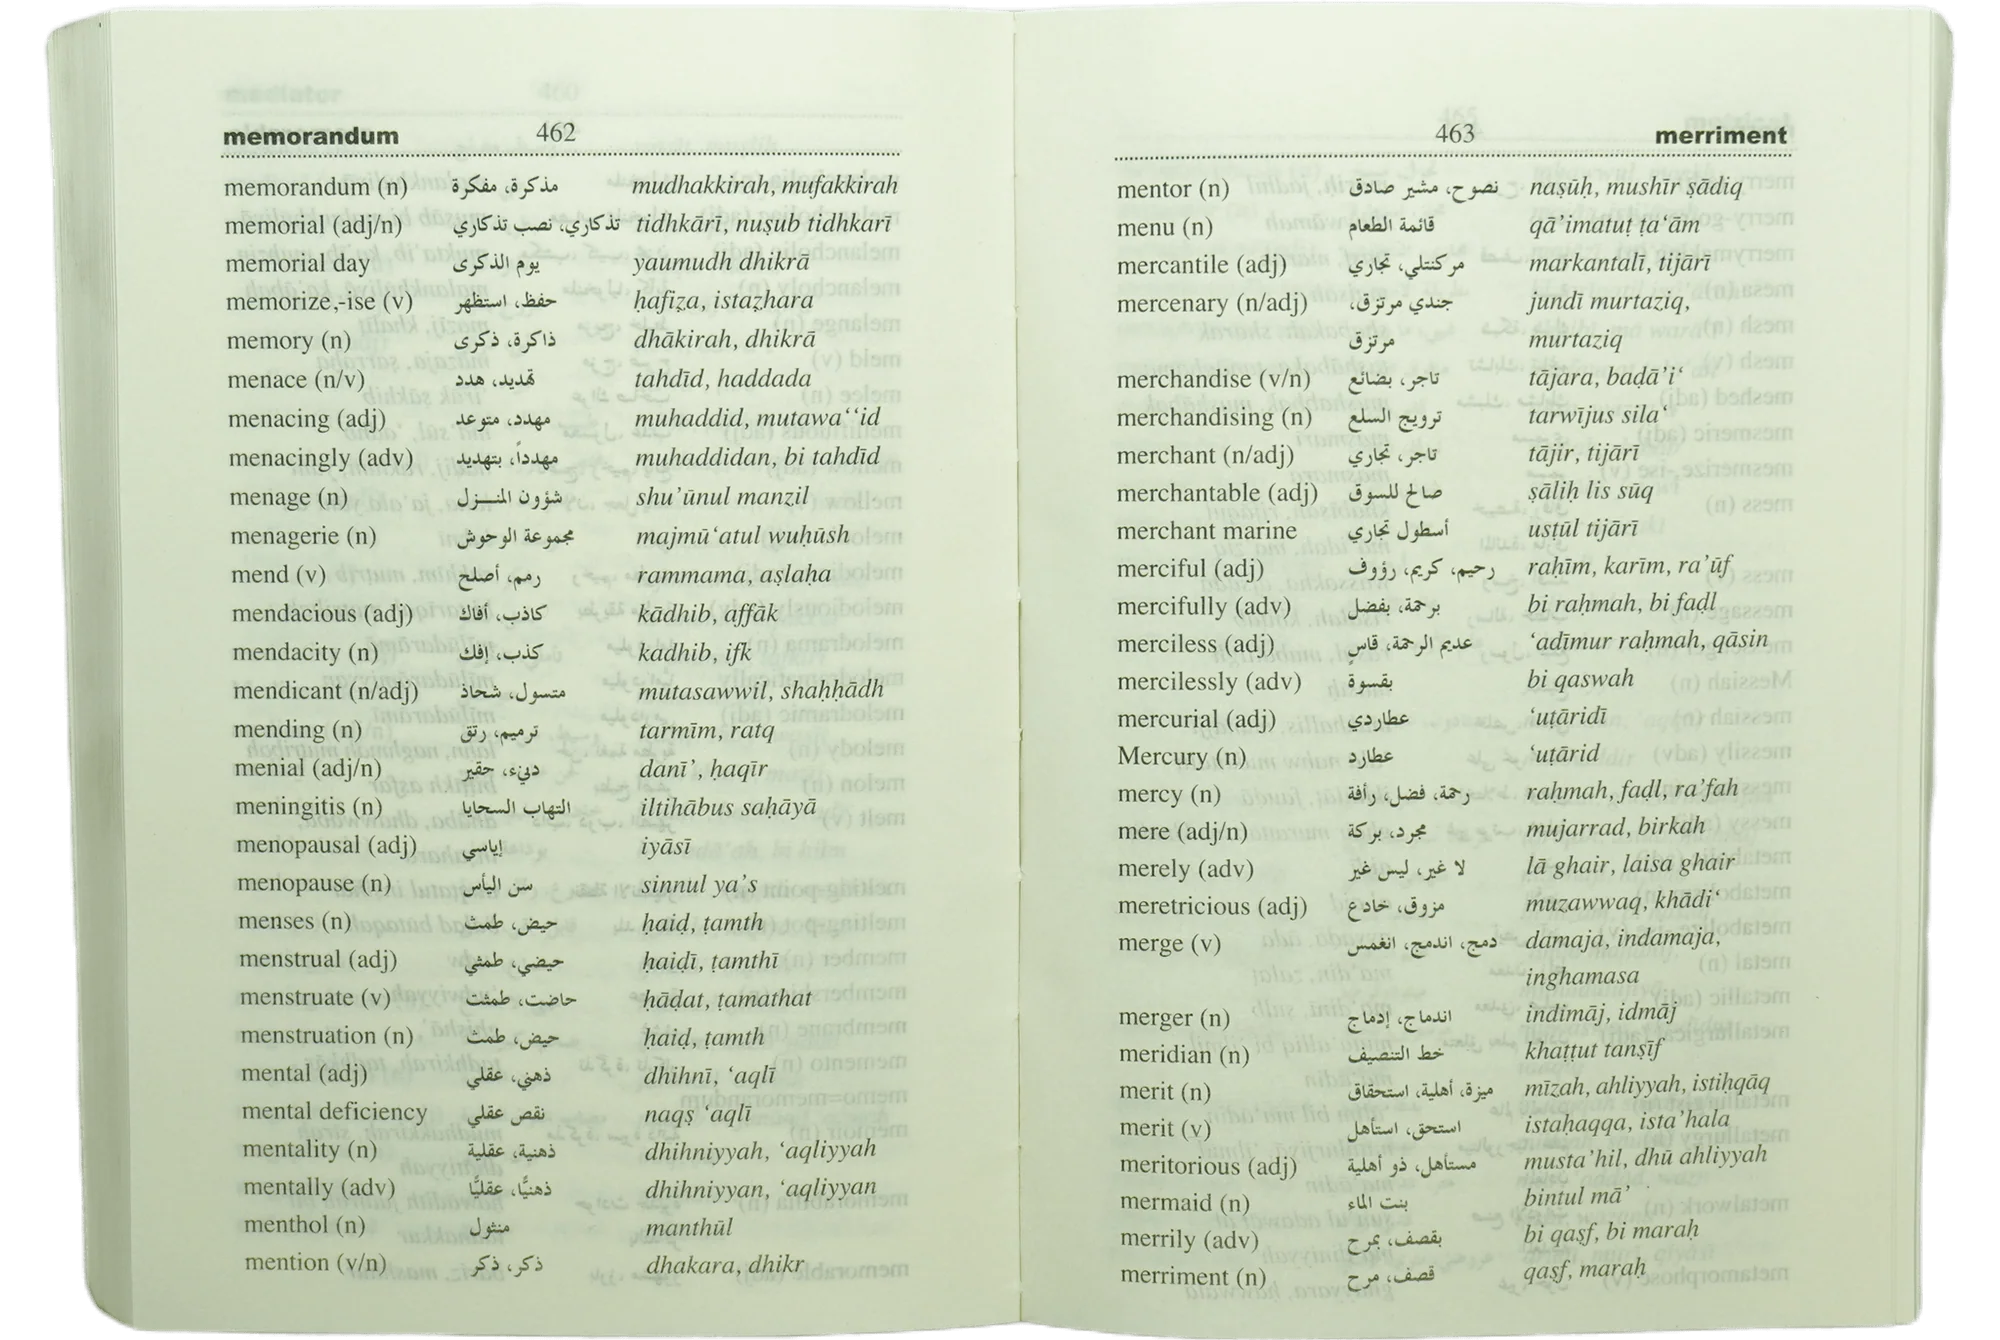 memorandum 462
memorandum (n) مذكرة، مفكرة mudhakkirah, mufakkirah
memorial (adj/n) تذكاري، نصب تذكاري tidhkārī, nuṣub tidhkarī
memorial day يوم الذكرى yaumudh dhikrā
memorize,-ise (v) حفظ، استظهر ḥafiẓa, istaẓhara
memory (n) ذاكرة، ذكرى dhākirah, dhikrā
menace (n/v) تهديد، هدد tahdīd, haddada
menacing (adj) مهدد، متوعد muhaddid, mutawa‘‘id
menacingly (adv) مهدداً، بتهديد muhaddidan, bi tahdīd
menage (n) شؤون المنـــزل shu’ūnul manzil
menagerie (n) مجموعة الوحوش majmū‘atul wuḥūsh
mend (v) رمم، أصلح rammama, aṣlaḥa
mendacious (adj) كاذب، أفاك kādhib, affāk
mendacity (n) كذب، إفك kadhib, ifk
mendicant (n/adj) متسول، شحاذ mutasawwil, shaḥḥādh
mending (n) ترميم، رتق tarmīm, ratq
menial (adj/n) دنيء، حقير danī’, ḥaqīr
meningitis (n) التهاب السحايا iltihābus saḥāyā
menopausal (adj) إياسي iyāsī
menopause (n) سن اليأس sinnul ya’s
menses (n) حيض، طمث ḥaiḍ, ṭamth
menstrual (adj) حيضي، طمثي ḥaiḍī, ṭamthī
menstruate (v) حاضت، طمثت ḥāḍat, ṭamathat
menstruation (n) حيض، طمث ḥaiḍ, ṭamth
mental (adj) ذهني، عقلي dhihnī, ‘aqlī
mental deficiency نقص عقلي naqṣ ‘aqlī
mentality (n) ذهنية، عقلية dhihniyyah, ‘aqliyyah
mentally (adv) ذهنيًّا، عقليًّا dhihniyyan, ‘aqliyyan
menthol (n) منثول manthūl
mention (v/n) ذكر، ذكر dhakara, dhikr
463 merriment
mentor (n) نصوح، مشير صادق naṣūḥ, mushīr ṣādiq
menu (n) قائمة الطعام qā’imatuṭ ṭa‘ām
mercantile (adj) مركنتلي، تجاري markantalī, tijārī
mercenary (n/adj) جندي مرتزق، jundī murtaziq,
مرتزق murtaziq
merchandise (v/n) تاجر، بضائع tājara, baḍā’i‘
merchandising (n) ترويج السلع tarwījus sila‘
merchant (n/adj) تاجر، تجاري tājir, tijārī
merchantable (adj) صالح للسوق ṣāliḥ lis sūq
merchant marine أسطول تجاري usṭūl tijārī
merciful (adj) رحيم، كريم، رؤوف raḥīm, karīm, ra’ūf
mercifully (adv) برحمة، بفضل bi raḥmah, bi faḍl
merciless (adj) عديم الرحمة، قاسٍ ‘adīmur raḥmah, qāsin
mercilessly (adv) بقسوة bi qaswah
mercurial (adj) عطاردي ‘uṭāridī
Mercury (n) عطارد ‘uṭārid
mercy (n) رحمة، فضل، رأفة raḥmah, faḍl, ra’fah
mere (adj/n) مجرد، بركة mujarrad, birkah
merely (adv) لا غير، ليس غير lā ghair, laisa ghair
meretricious (adj) مزوق، خادع muzawwaq, khādi‘
merge (v) دمج، اندمج، انغمس damaja, indamaja,
inghamasa
merger (n) اندماج، إدماج indimāj, idmāj
meridian (n) خط التنصيف khaṭṭut tanṣīf
merit (n) ميزة، أهلية، استحقاق mīzah, ahliyyah, istiḥqāq
merit (v) استحق، استأهل istaḥaqqa, ista’hala
meritorious (adj) مستأهل، ذو أهلية musta’hil, dhū ahliyyah
mermaid (n) بنت الماء bintul mā’
merrily (adv) بقصف، بمرح bi qaṣf, bi maraḥ
merriment (n) قصف، مرح qaṣf, maraḥ